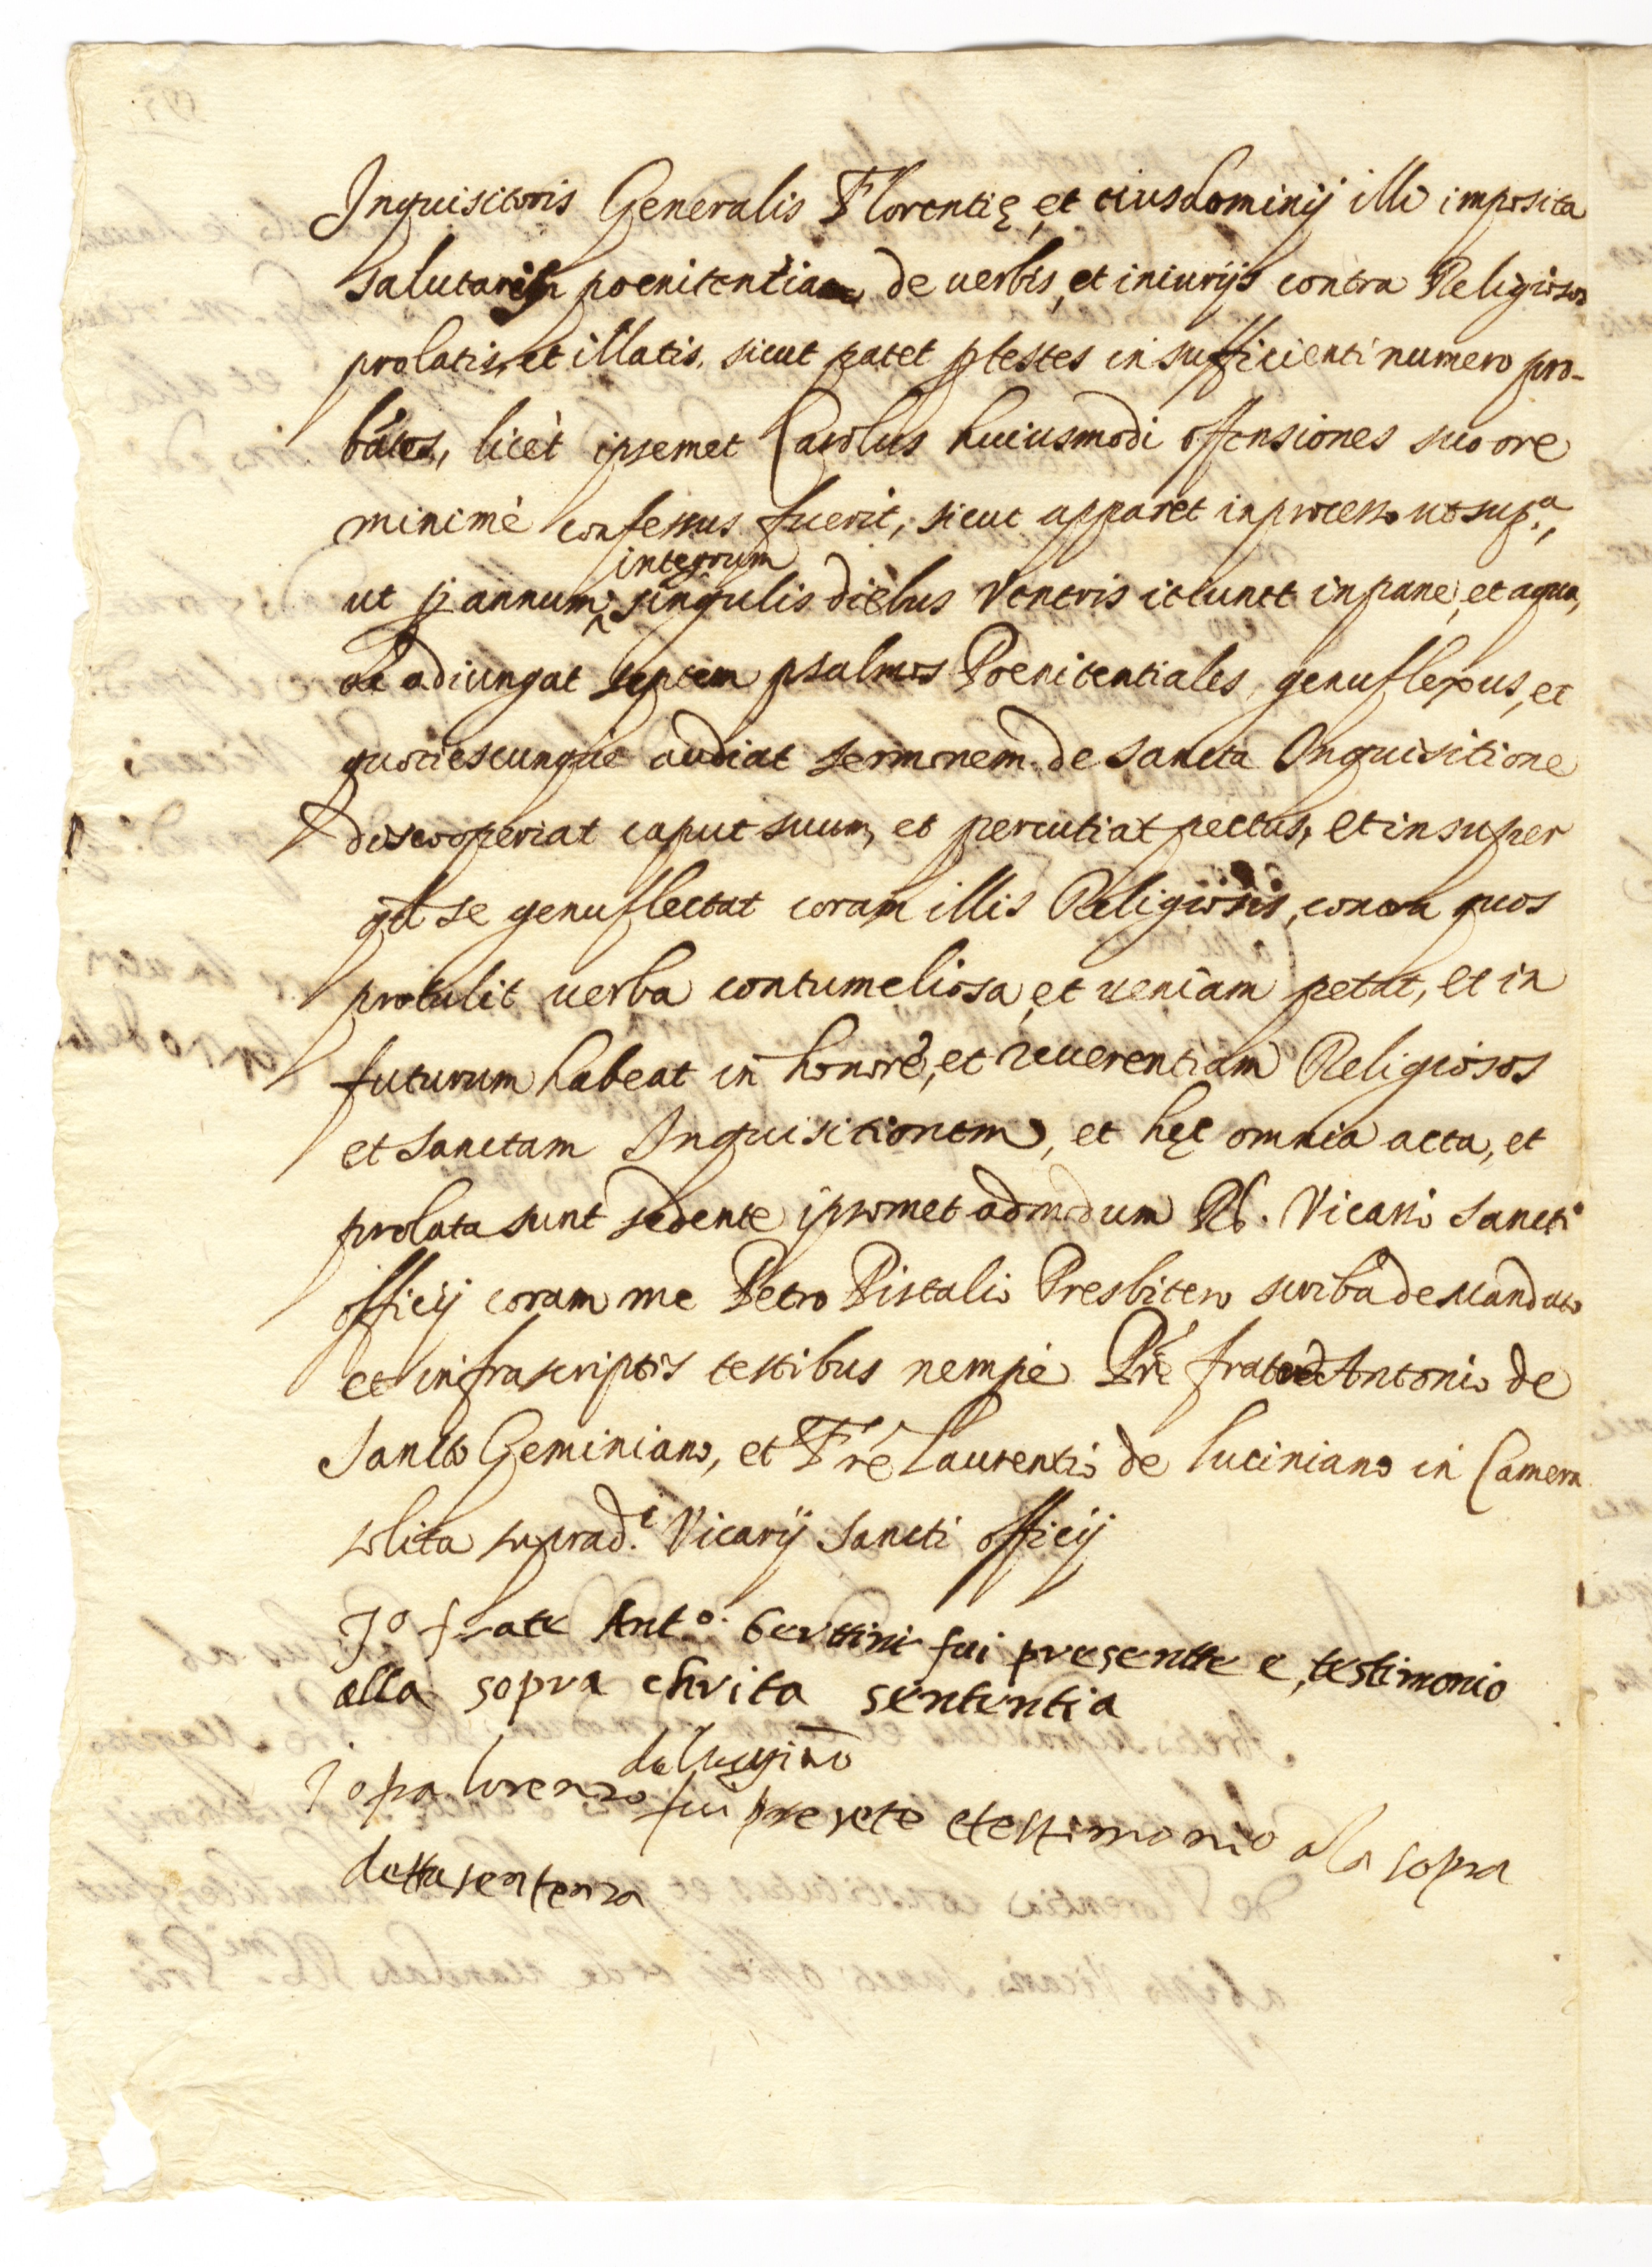 Inquisitoris Generalis Florentię, et eiusdominij illi imposita
salutaris poenitentia de uerbis, et iniurijs contra Religiosos
prolatis, et illatis, sicut patet p testes in sufficienti numero pro-
batos, licèt ipsemet Carolus huiusmodi offensiones suo ore
minimè confessus fuerit, sicut apparet in processo ut sup.ª,
integrum
ut p annum ^ singulis diebus Veneris ieiunet in pane, et aqua,
ac adiungat septem psalmos Poenitentiales, genuflexus, et
quotiescunque audiat sermonem de Sancta Inquisitione
discooperiat caput suum, et percutiat pectus, et insuper
qd se genuflectat coram illis Religiosis, contra quos
protulit uerba contumeliosa, et ueniam petat, et in
futurum habeat in honorē, et reuerentiam Religiosos
et Sanctam Inquisitionem, et hęc omnia acta, et
prolata sunt sedente ipsomet admodum Rd. Vicario Sancti
officij coram me Petro Pistalio Presbitero scriba de Mandato
et infrascriptis testibus nempè Prē fratre Antonio de
Sancto Geminiano, et Frē Laurentio de luciniano in Camera
solita suprad.i Vicarij Sancti officij
Jo frate Ant.o Bertini fui presente e, testimonio
alla sopra chrita sententia
da lucignāo
Jo fra lorenzo fui presete e testimonio ala sopra
detta sentenza